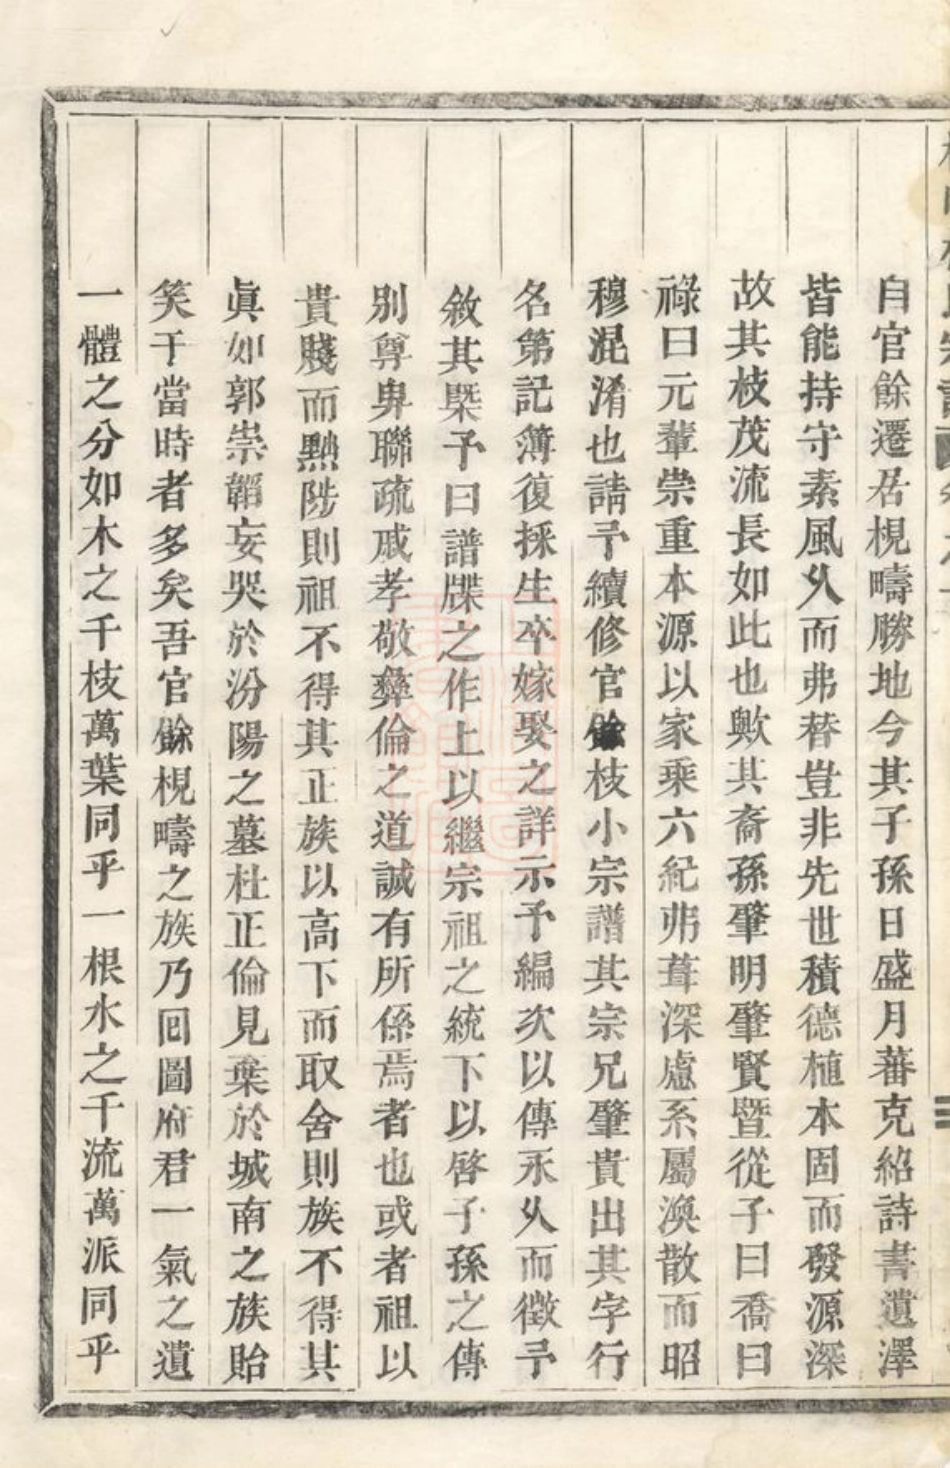 自官餘遷居梘疇勝地今其子孫日盛月蕃克紹詩書遺澤
皆能持守素風久而弗替豈非先世積德植本固而發源深
故其枝茂流長如此也歟其裔孫肇明肇賢暨從子曰喬曰
祿曰元輩崇重本源以家乘六紀弗葺深慮系屬渙散而昭
穆混淆也請予續修官餘枝小宗譜其宗兄肇貴出其字行
名第記簿復採生卒嫁娶之詳示予編次以傳永久而徵予
敘其槩予曰譜牒之作上以繼宗祖之統下以啓子孫之傳
別尊卑聯疏戚孝敬彝倫之道誠有所係焉者也或者祖以
貴賤而黜陟則祖不得其正族以高下而取舍則族不得其
眞如郭崇韜妄哭於汾陽之墓杜正倫見棄於城南之族貽
笑于當時者多矣吾官餘梘疇之族乃囘圖府君一氣之遺
一體之分如木之千枝萬葉同乎一根水之千流萬派同乎